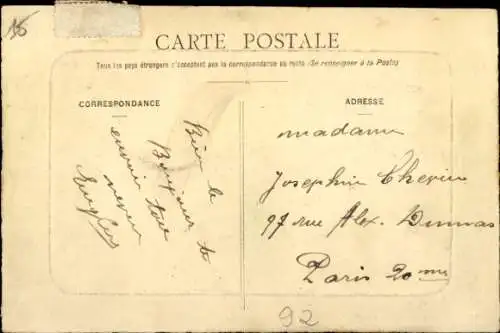 15
CARTE POSTALE
Tous les pays étrangers n'acceptent pas la correspondance au recto (Se renseigner à la Poste)
CORRESPONDANCE
ADRESSE
Bien le
Bonjour
envoie tout
neveu
madame
Josephine
97 rue Alex. Dumas
Paris 20me
92